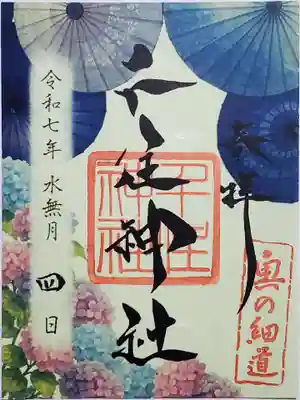 奉拝
奥の細道
千住神社
千住神社
令和七年 水無月 四日